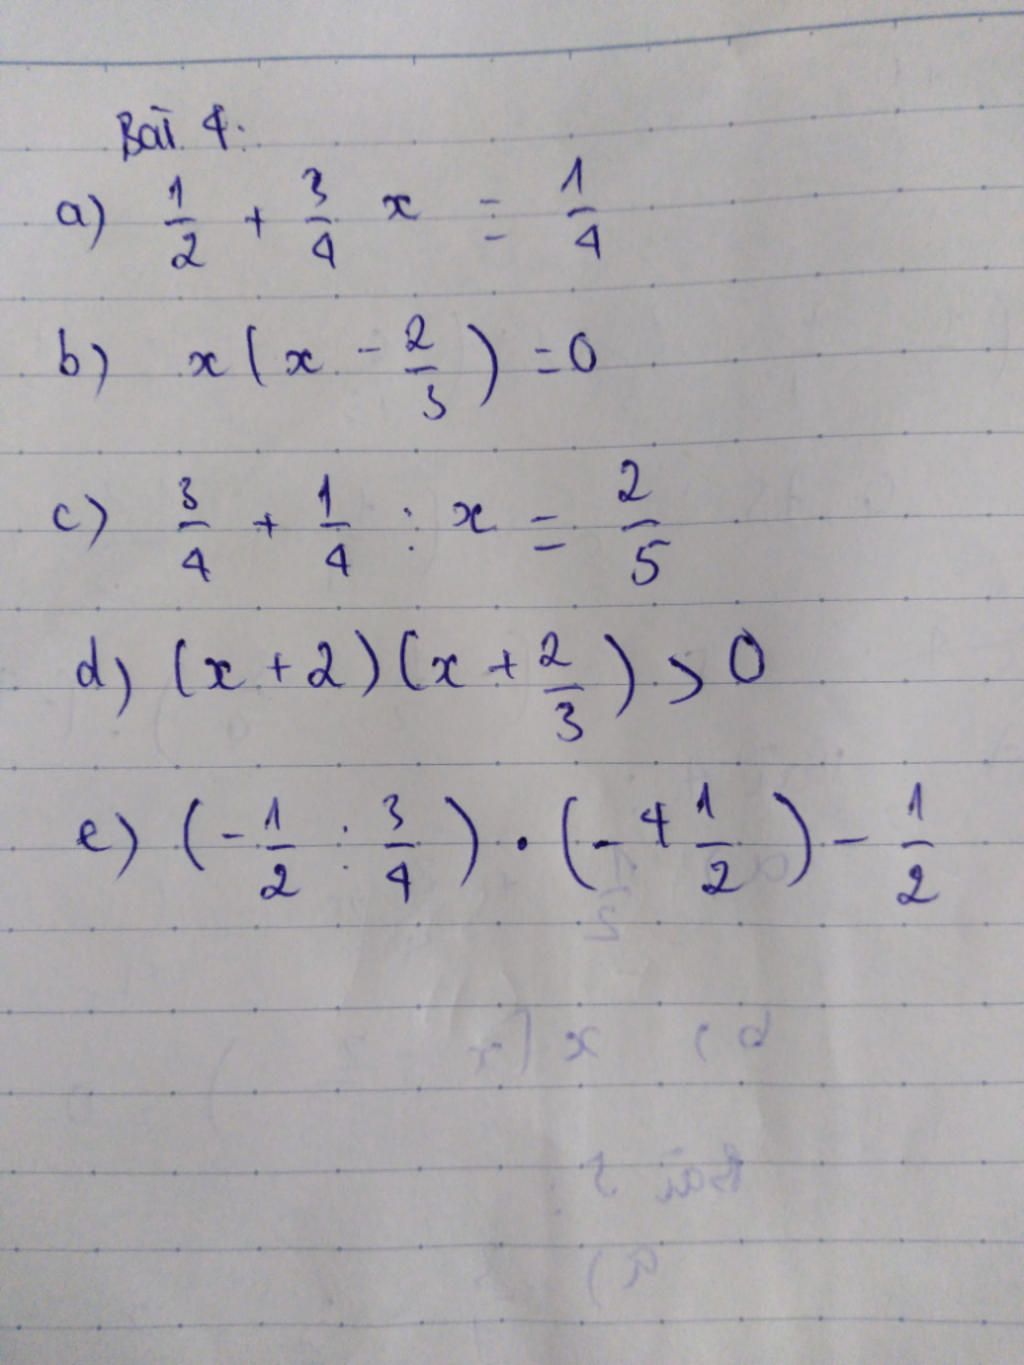 Bài 4:
a) 1/2 + 3/4 x = 1/4
b) x(x - 2/3) = 0
c) 3/4 + 1/4 : x = 2/5
d) (x + 2)(x + 2/3) > 0
e) (-1/2 : 3/4) . (-4 1/2) - 1/2